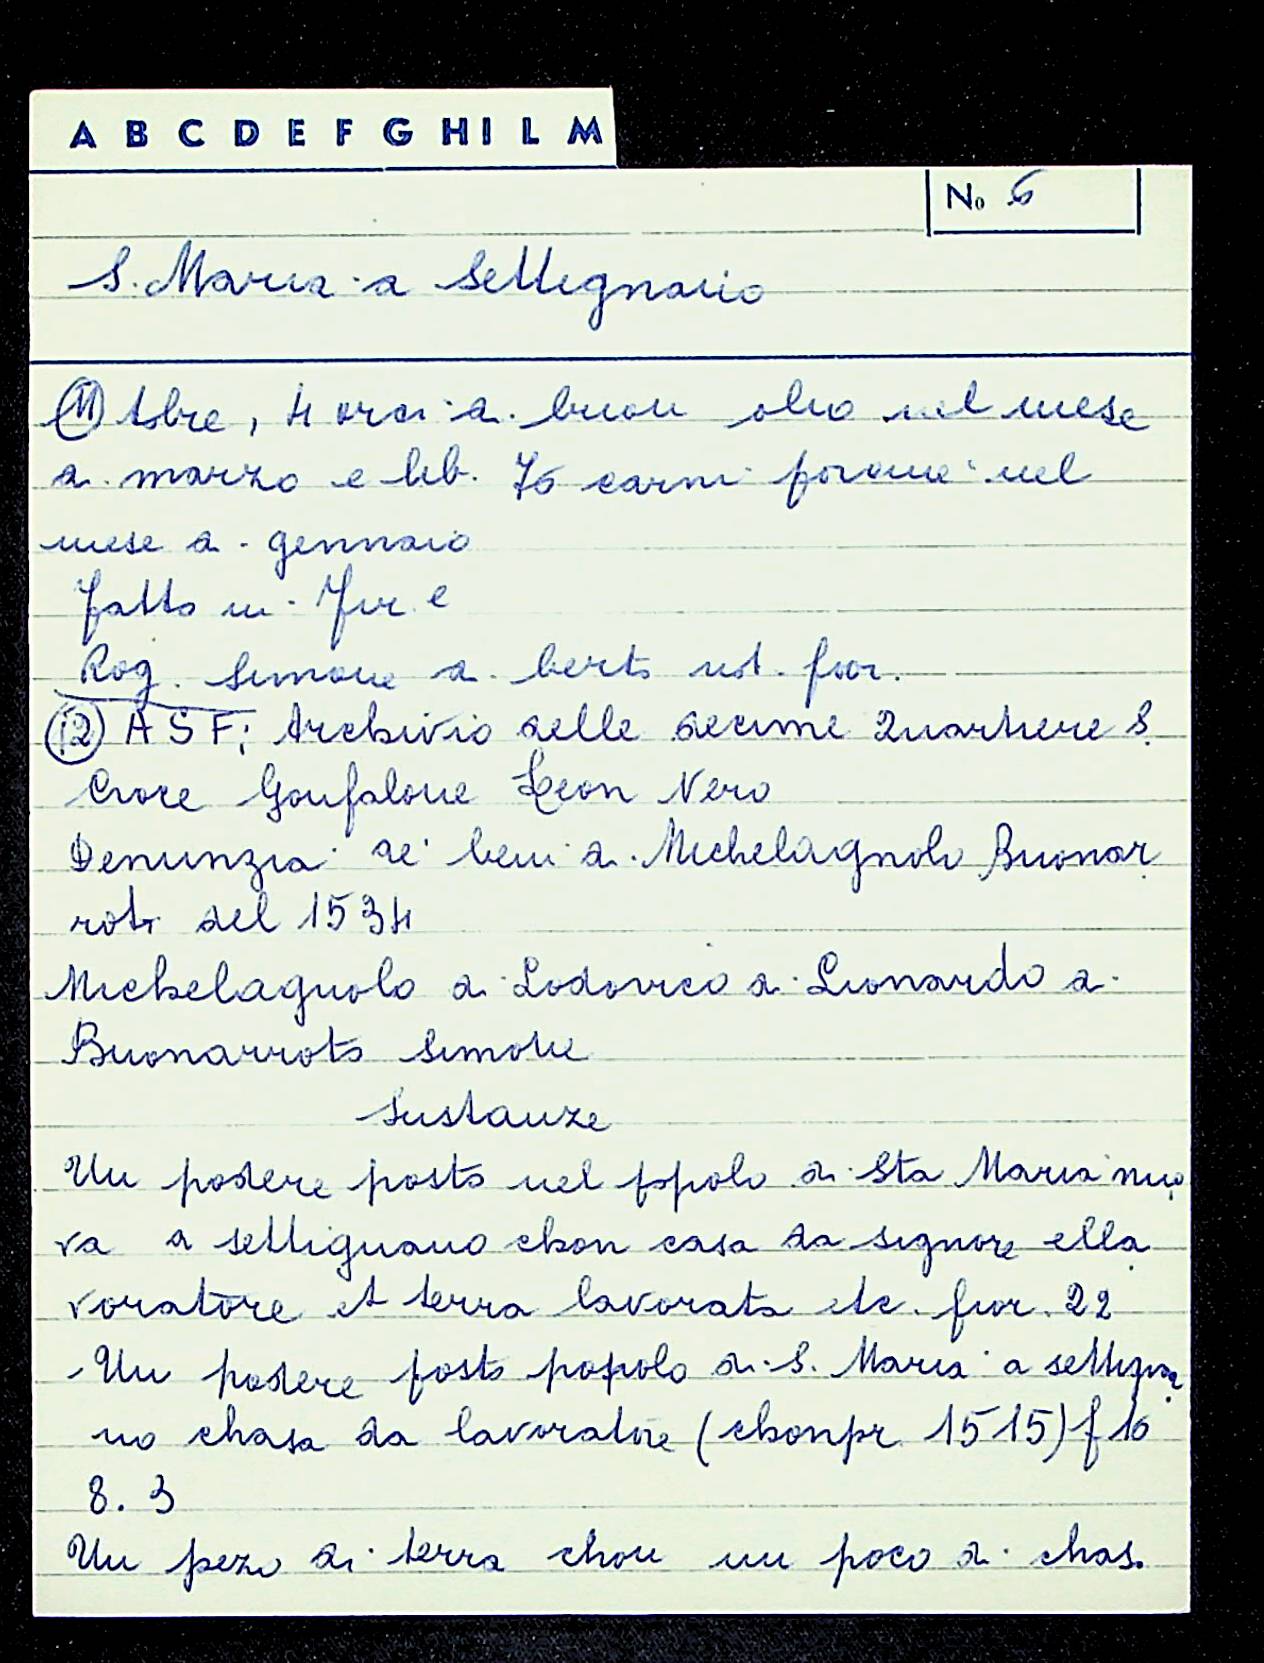 A B C D E F G H I L M
No 6
S. Maria a Settignano
(11) tobre, 4 orci di buon olio nel mese
di marzo e lib. 76 carni porcine nel
mese di gennaio
fatto in Fir e
Rog. Simone di berto not. fior.
(12) A S F; Archivio delle decime Quartiere S.
Croce Gonfalone Leon Nero
Denunzia de' beni di Michelagnolo Buonar
roti del 1534
Michelagnolo di Lodovico di Lionardo di
Buonarroto Simoni
Sustanze
Un podere posto nel popolo di Sta Maria nuo
va a settignano chon casa da signore ella
voratore et terra lavorata etc. fior. 22
Un podere posto popolo di S. Maria a settigna
no chasa da lavoratore (chonpr. 1515) f 16
8. 3
Un pezo di terra chon un poco di chas.